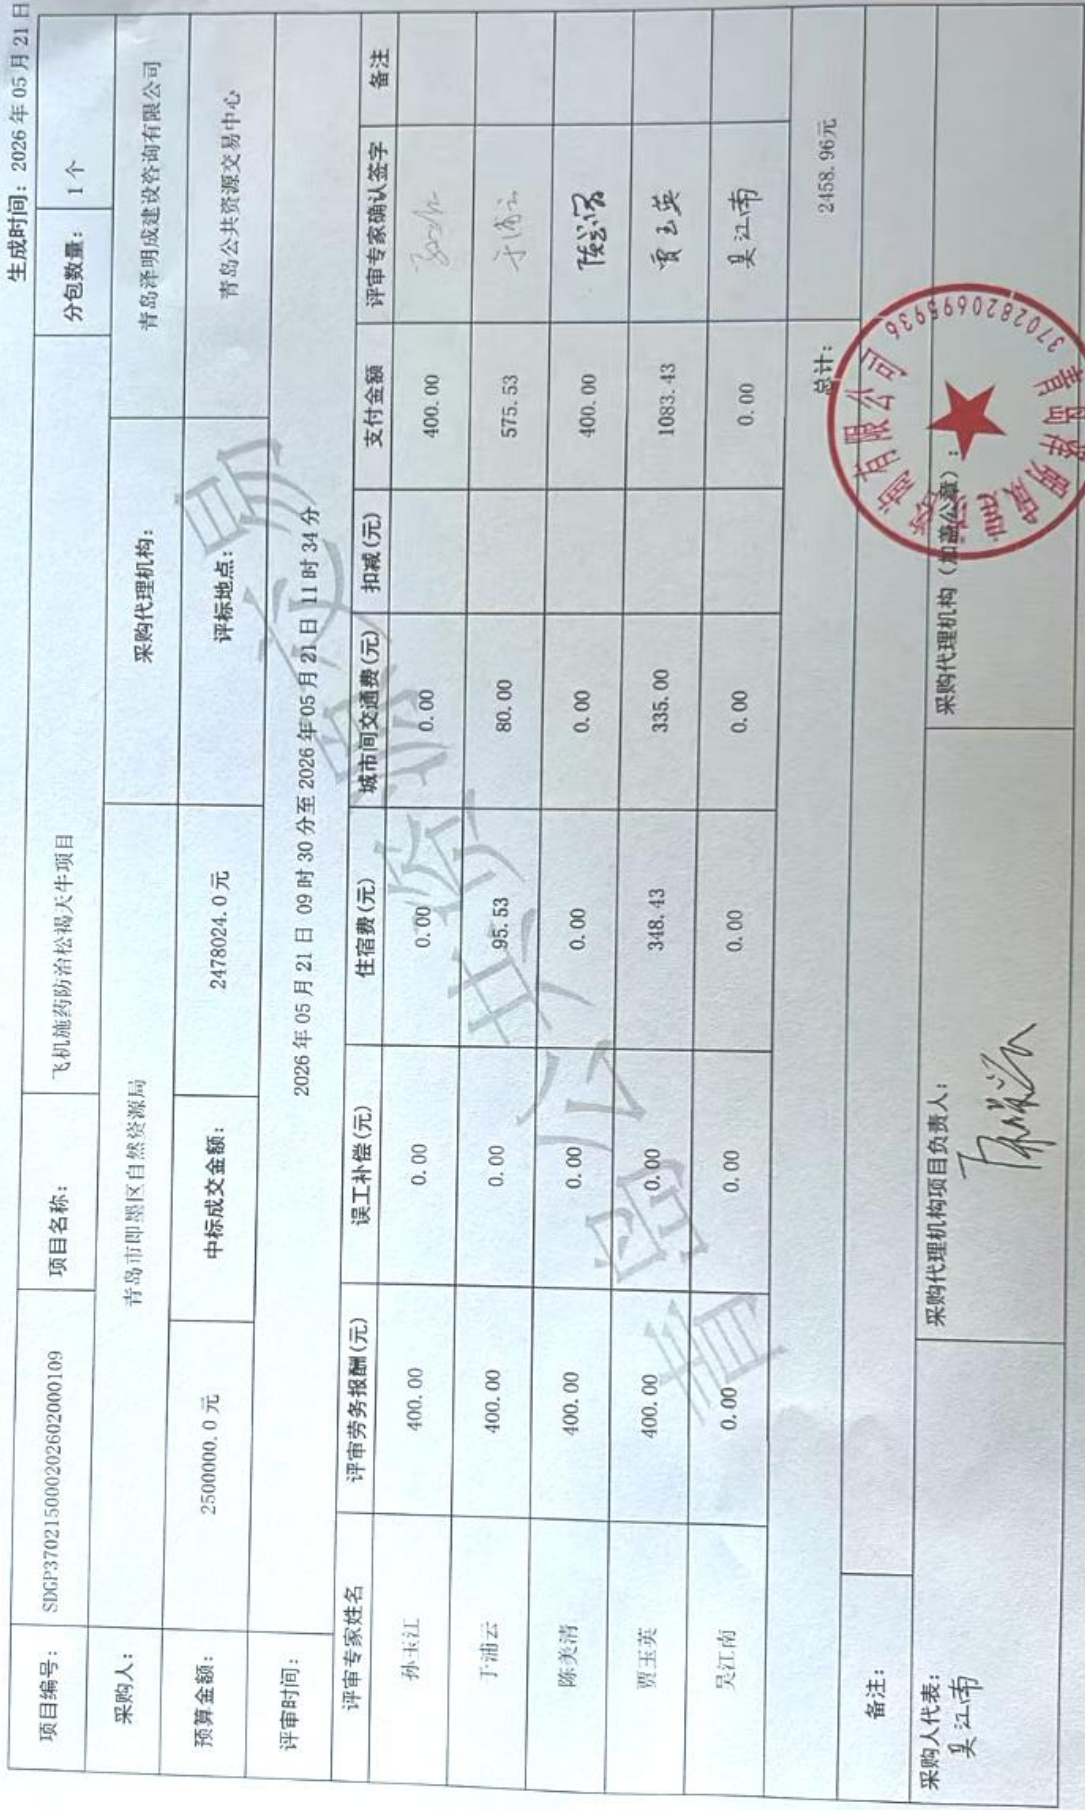 生成时间: 2026 年 05 月 21 日
项目编号: SDGP370215000202602000109 项目名称: 飞机施药防治松褐天牛项目 分包数量: 1 个
采购人: 青岛市即墨区自然资源局 采购代理机构: 青岛泽明成建设咨询有限公司
预算金额: 2500000.0 元 中标成交金额: 2478024.0 元 评标地点: 青岛公共资源交易中心
评审时间: 2026 年 05 月 21 日 09 时 30 分至 2026 年 05 月 21 日 11 时 34 分
评审专家姓名 评审劳务报酬(元) 误工补偿(元) 住宿费(元) 城市间交通费(元) 扣减(元) 支付金额 评审专家确认签字 备注
孙玉江 400.00 0.00 0.00 0.00 400.00
于浦云 400.00 0.00 95.53 80.00 575.53 于浦云
陈美清 400.00 0.00 0.00 0.00 400.00
贾玉英 400.00 0.00 348.43 335.00 1083.43 贾玉英
吴江南 0.00 0.00 0.00 0.00 0.00 吴江南
总计: 2458.96元
备注:
采购人代表: 采购代理机构项目负责人: 采购代理机构(加盖公章):
吴江南
青岛公共资源交易
3702820695936